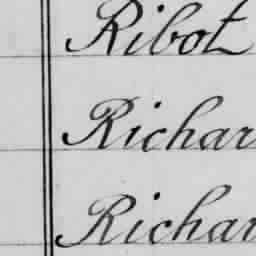 Ribot
Richar
Richar